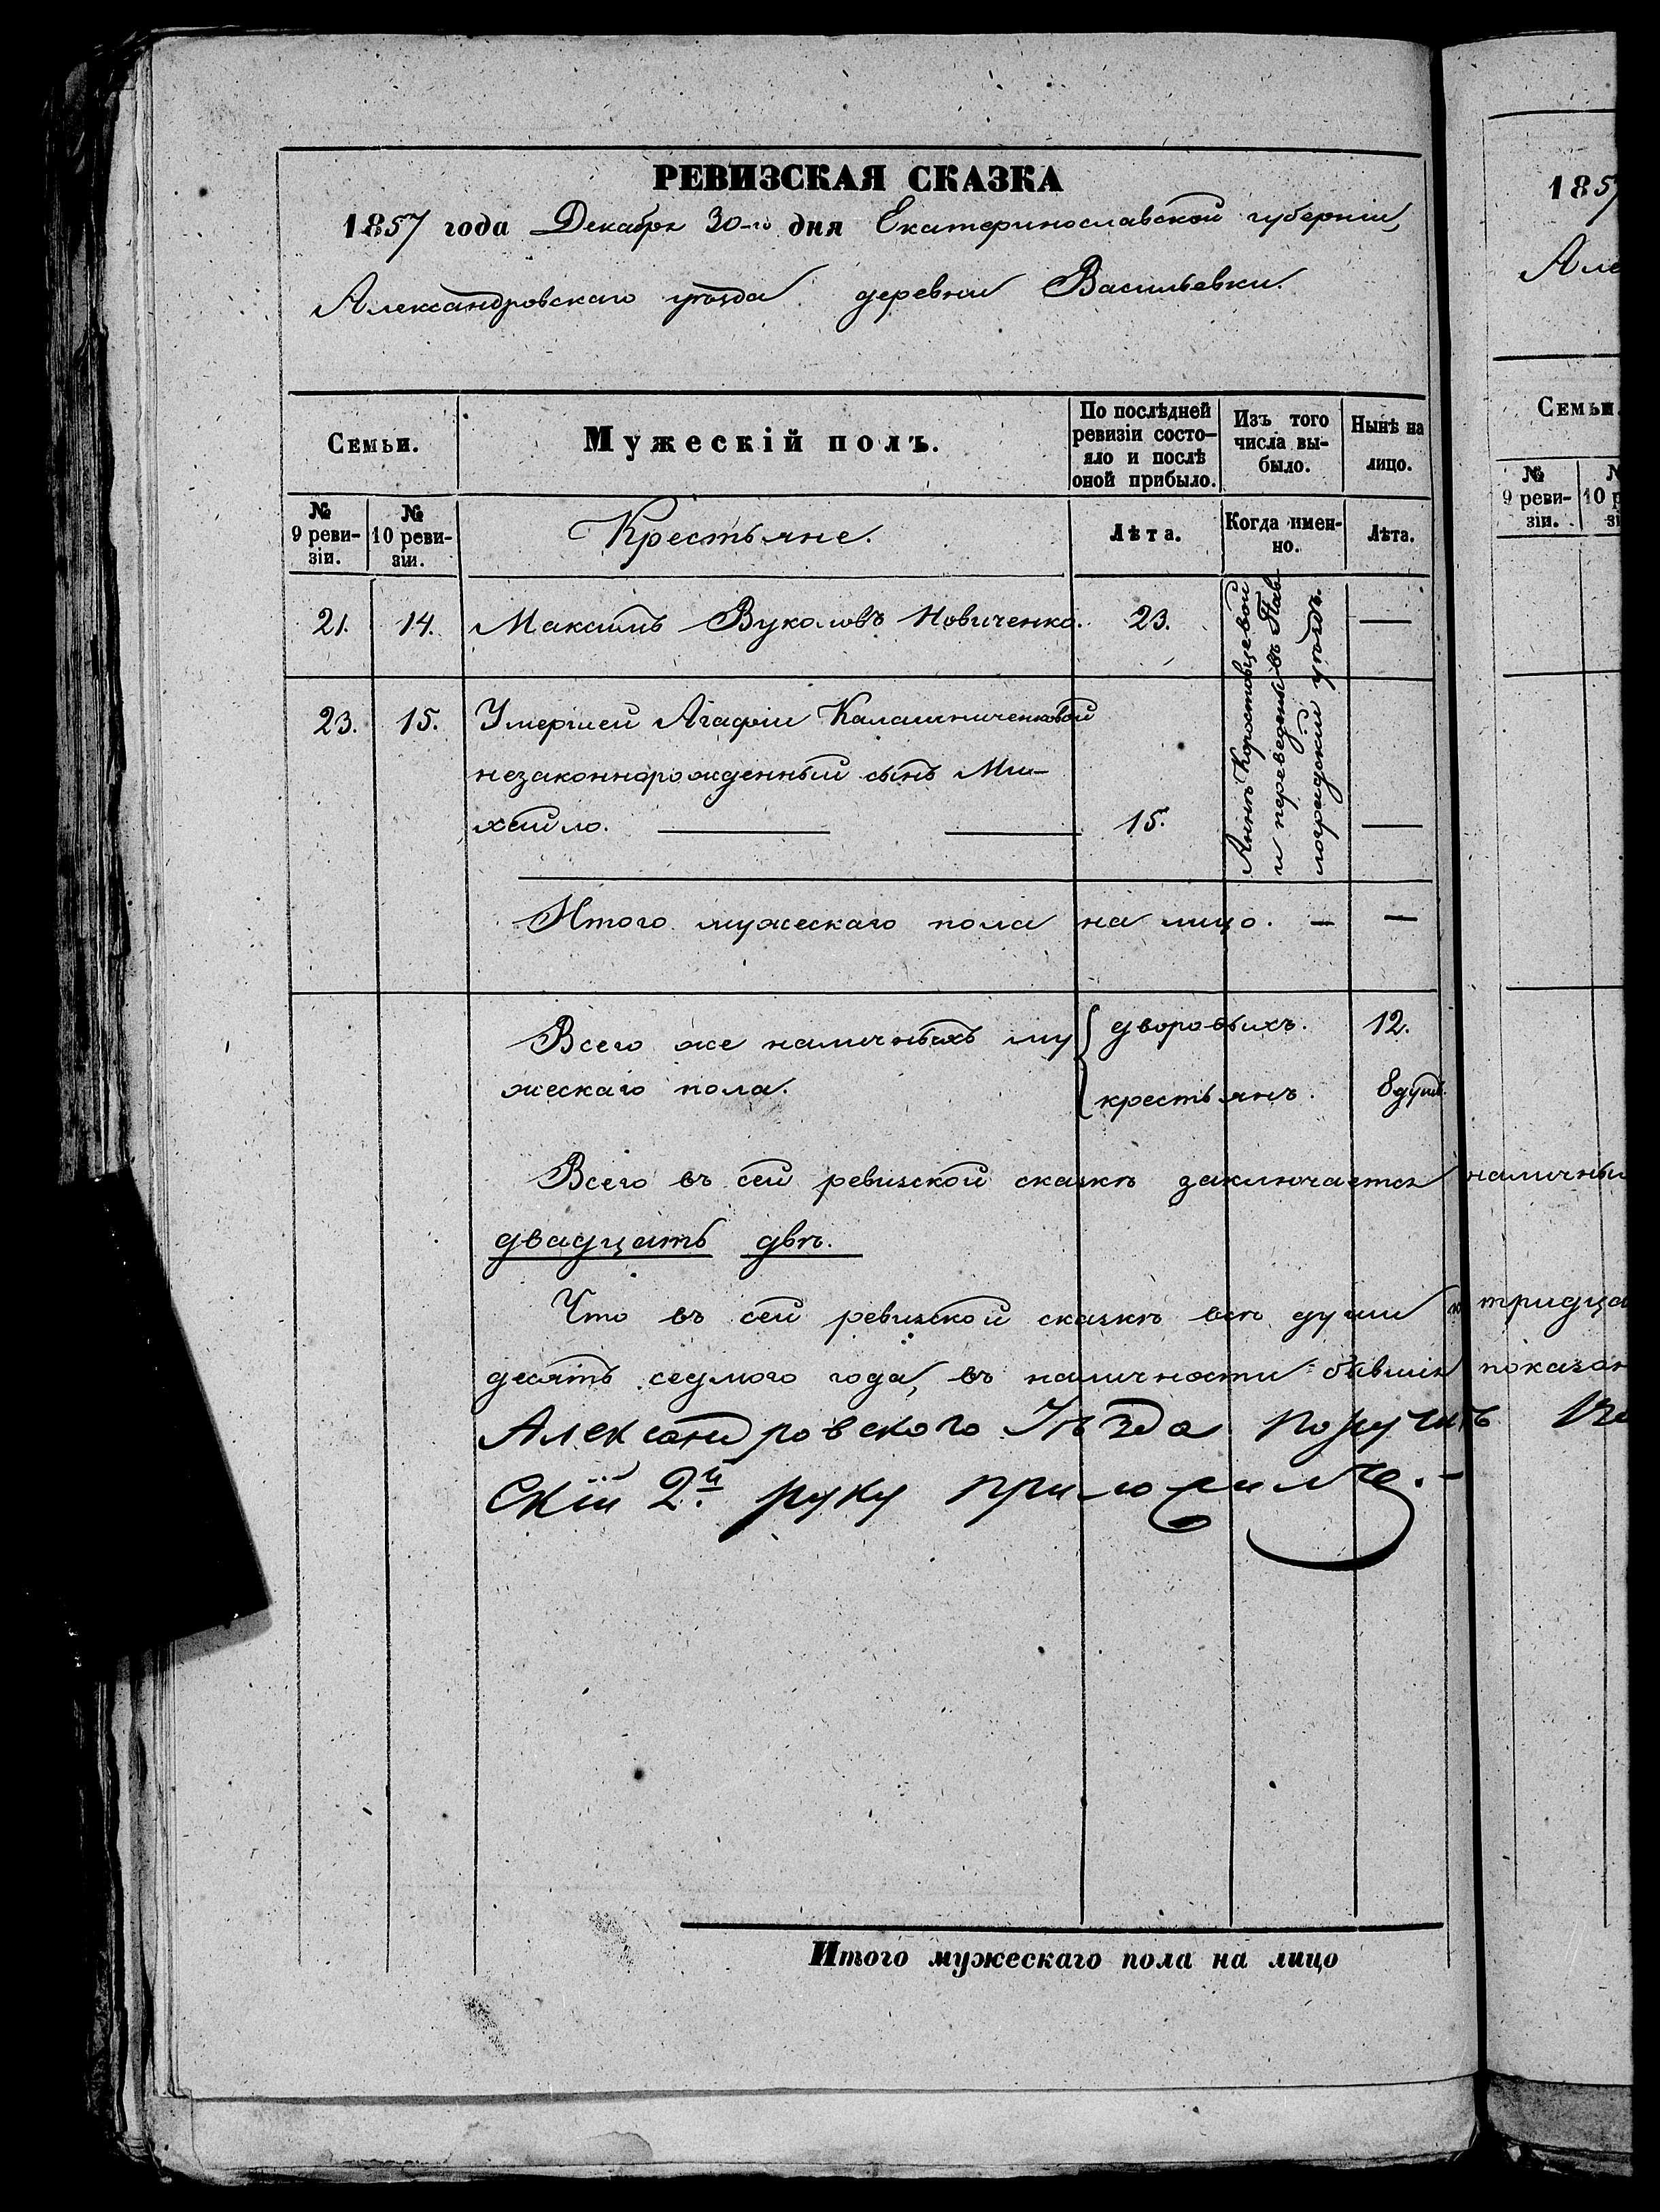 РЕВИЗСКАЯ СКАЗКА
1857 года Декабря 30-го дня Екатеринославской губерніи,
Александровскаго уѣзда деревни Васильевки.
Семьи.
Мужескій полъ.
По послѣдней
ревизіи состо-
яло и послѣ
оной прибыло.
Изъ того
числа вы-
было.
Нынѣ на
лицо.
№
9 реви-
зіи.
№
10 реви-
зіи.
Крестьяне.
Лѣта.
Когда имен-
но.
Лѣта.
21. 14. Максимъ Вукаловъ Новиченко. 23. —
23. 15. Умершей Агафіи Калашниченковой
незаконнорожденный сынъ Ми-
хайло. 15. —
Аннѣ Коростовцевой
и переведены въ Пав-
лоградскій уѣздъ.
Итого мужескаго пола на лицо. — —
Всего же наличныхъ му
жескаго пола.
дворовыхъ. 12.
крестьянъ. 8 душъ.
Всего въ сей ревизской сказкѣ заключается наличны
двадцать двѣ.
Что въ сей ревизской сказкѣ всѣ души тридца
десять седмого года, въ наличности бывшія показан
Александровского Уѣзда Поручикъ
Скій 2й. руку приложилъ.-
Итого мужескаго пола на лицо
185
Але
Семьи.
№
9 реви-
зіи.
№
10 р
зі